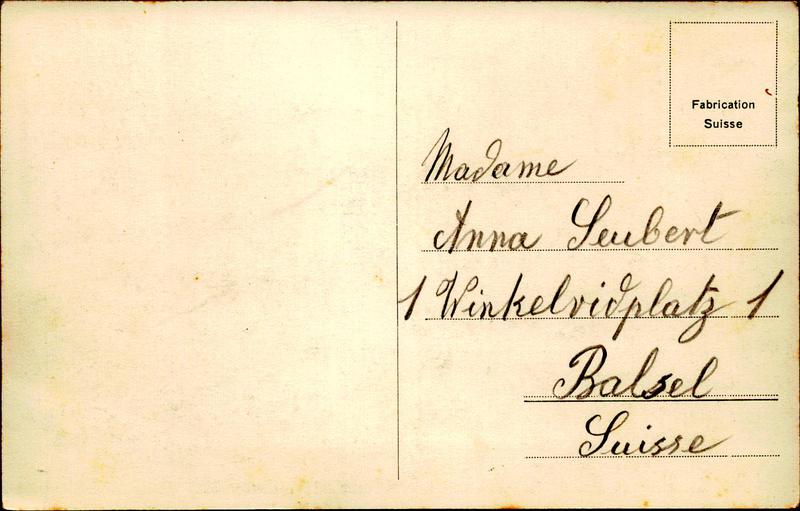 Fabrication
Suisse
Madame
Anna Seubert
1 Winkelridplatz 1
Balsel
Suisse